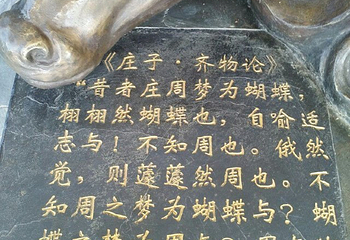 《庄子·齐物论》
“昔者庄周梦为蝴蝶，
栩栩然蝴蝶也，自喻适
志与！不知周也。俄然
觉，则蘧蘧然周也。不
知周之梦为蝴蝶与？
蝶之梦为周与